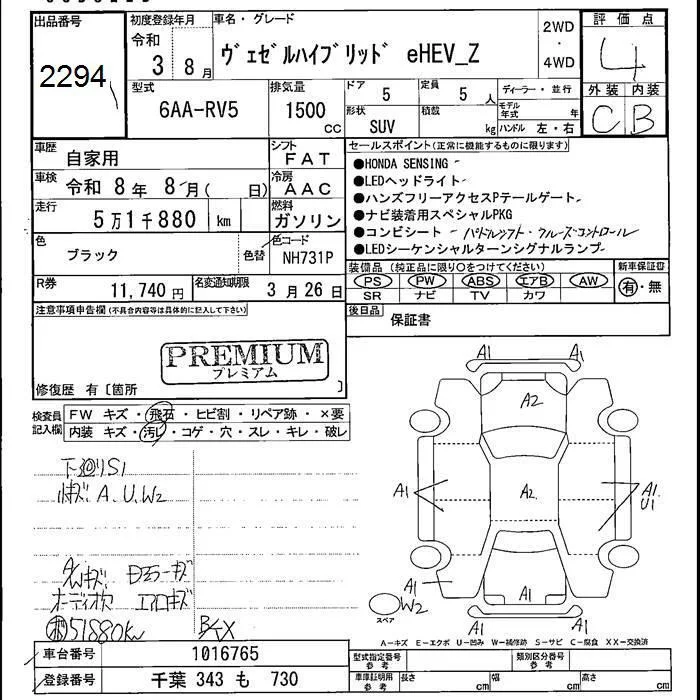 出品番号
2294
初度登録年月
令和
3 8月
車名・グレード
ヴェゼルハイブリッド eHEV_Z
2WD
・
4WD
評価点
4
外装 内装
C B
型式
6AA-RV5
排気量
1500
cc
ドア
5
定員
5 人
形状
SUV
積載
kg
ディーラー・並行
モデル年式 年
ハンドル 左・右
車歴
自家用
シフト
FAT
車検
令和 8年 8月( 日)
冷房
AAC
走行
5万1千880 km
燃料
ガソリン
色
ブラック
色替
色コード
NH731P
R券
11,740 円
名変通知期限
3月26日
セールスポイント(正常に機能するものに限ります)
●HONDA SENSING
●LEDヘッドライト
●ハンズフリーアクセスPテールゲート
●ナビ装着用スペシャルPKG
●コンビシート パドルシフト・クルーズコントロール
●LEDシーケンシャルターンシグナルランプ
装備品(純正品に限り○をつけてください)
新車保証書
PS PW ABS エアB AW
SR ナビ TV カワ
有・無
後日品
保証書
注意事項申告欄(不具合内容等は具体的に記入して下さい)
PREMIUM
プレミアム
修復歴 有〔箇所 〕
検査員記入欄
FW キズ・飛石・ヒビ割・リペア跡・×要
内装 キズ・汚レ・コゲ・穴・スレ・キレ・破レ
下廻りS1
A.U.W2
オーディオ欠 エアロキズ
51880km
A1 A1
A2
A1
A2
A1
U1
A1
W2
A1
A1 A1
スペア
A-キズ E-エクボ U-凹み W-補修跡 S-サビ C-腐食 XX-交換済
車台番号
1016765
登録番号
千葉 343 も 730
型式指定番号
参考
類別区分番号
参考
車庫証明用
参考
長さ cm
幅 cm
高さ cm